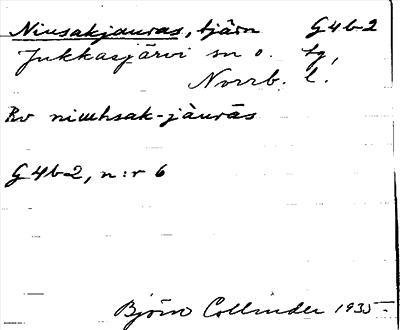 Niusakjauras, tjärn G4b2
Jukkasjärvi sn o. tg,
Norrb. l.
Rv niuhsak-jàurãs
G4b2, n:r 6
Björn Collinder 1935